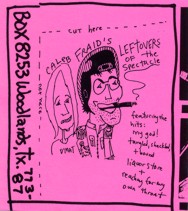 cut here
CALEB FRAID'S
LEFTOVERS
OF the
SPECtACLE
featuring the
hits:
my god!
tangled, chuckled,
+ bored
liquor store +
reaching for my
own throat
BOX 8253 Woodlands, tx. 773-
87